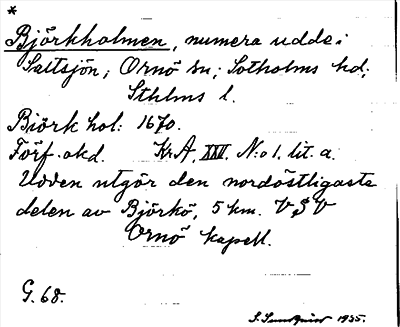 *
Björkholmen, numera udde i
Saltsjön; Ornö sn; Sotholms hd;
Sthlms l.
Biörk hol: 1670.
Förf. okd. Kr A, XXV. N:o 1. lit. a.
Udden utgör den nordöstligaste
delen av Björkö, 5 km. V S V
Ornö kapell.
G. 68.
S. Sundqvist 1935.